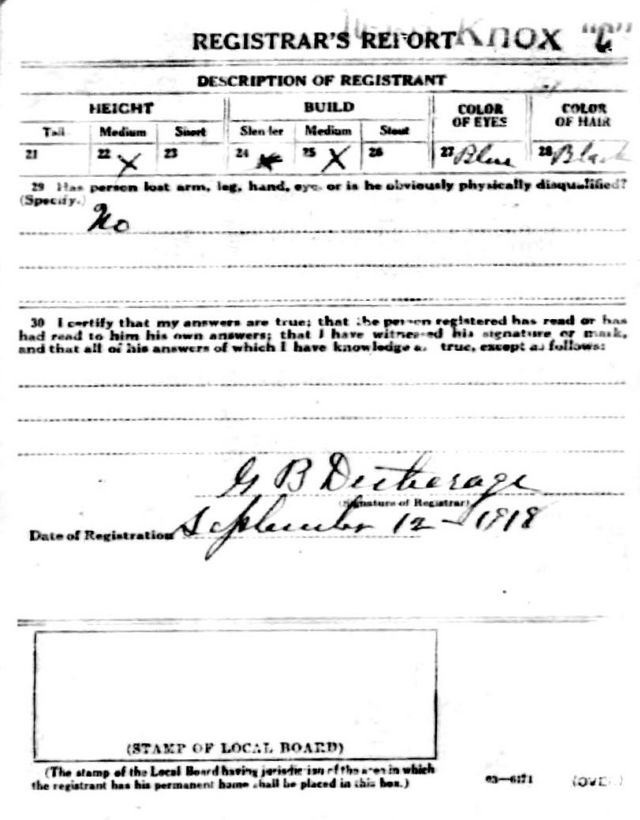 REGISTRAR'S REPORT Knox "C"
DESCRIPTION OF REGISTRANT
HEIGHT BUILD COLOR OF EYES COLOR OF HAIR
Tall Medium Short Slender Medium Stout
21 22 X 23 24 X 25 X 26 27 Blue 28 Black
29 Has person lost arm, leg, hand, eye, or is he obviously physically disqualified?
(Specify.)
No
30 I certify that my answers are true; that the person registered has read or has
had read to him his own answers; that I have witnessed his signature or mark,
and that all of his answers of which I have knowledge are true, except as follows:
G B Detherage
(Signature of Registrar)
Date of Registration September 12 - 1918
(STAMP OF LOCAL BOARD)
(The stamp of the Local Board having jurisdiction of the area in which
the registrant has his permanent home shall be placed in this box.)
03—6171 (OVER)